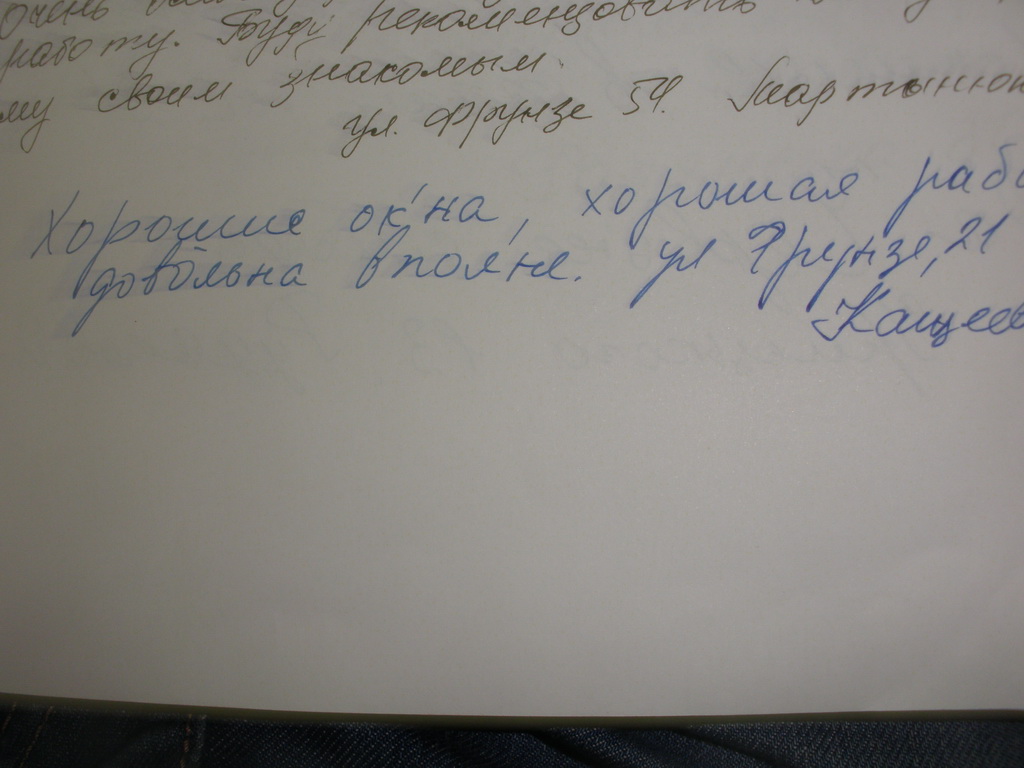 очень
работу. Буду рекомендовать
му своим знакомым.
ул. Фрунзе 54. Мартынюк
Хорошие окна, хорошая рабо
довольна вполне. ул Фрунзе, 21
Кащеев